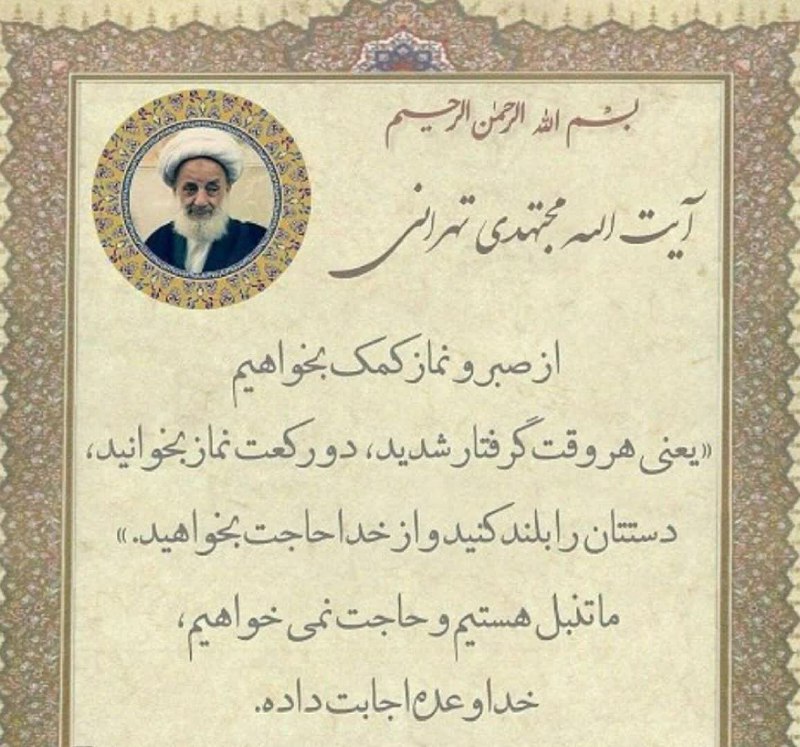 بسم الله الرحمن الرحیم
آیت الله مجتهدی تهرانی
از صبر و نماز کمک بخواهیم
«یعنی هر وقت گرفتار شدید، دو رکعت نماز بخوانید،
دستتان را بلند کنید و از خدا حاجت بخواهید.»
ما تنبل هستیم و حاجت نمی خواهیم،
خدا وعده اجابت داده.